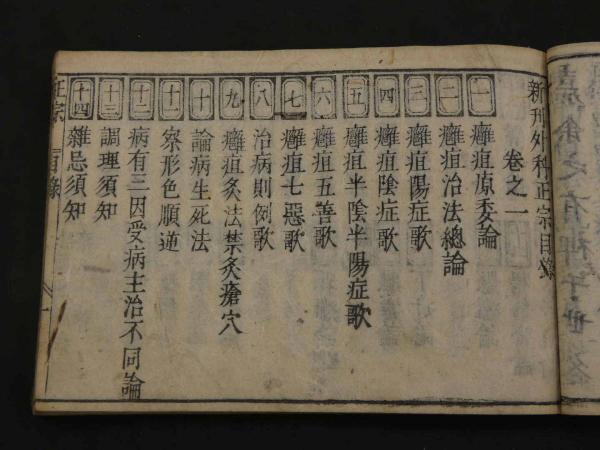 新刊外科正宗目錄
卷之一
一 癰疽原委論
二 癰疽治法總論
三 癰疽陽症歌
四 癰疽陰症歌
五 癰疽半陰半陽症歌
六 癰疽五善歌
七 癰疽七惡歌
八 治病則例歌
九 癰疽灸法禁灸瘡穴
十 論病生死法
十一 察形色順逆
十二 病有三因受病主治不同論
十三 調理須知
十四 雜忌須知
正宗 目錄